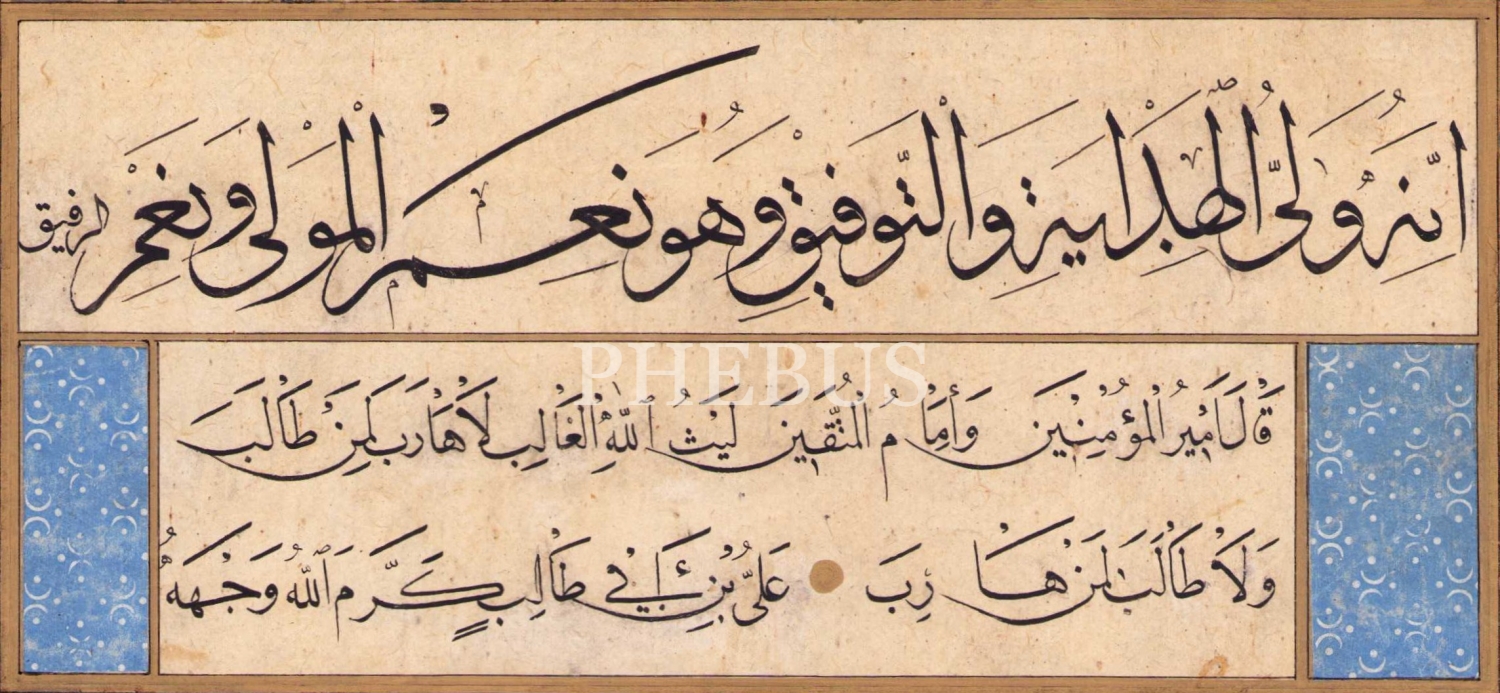 انّه وليّ الهداية والتوفيق وهو نعم المولى ونعم الرفيق
PHEBUS
قَالَ اَمِيرُ الْمُؤْمِنِينَ وَأِمَامُ الْمُتَّقِينَ لَيْثُ اللّٰهِ الْغَالِبِ لَاهَارِبَ لِمَنْ طَالَبَ
وَلَا طَالَبَ لِمَنْ هَارِبَ عَلِيُّ بْنِ أَبِي طَالِبٍ كَرَّمَ اللّٰهُ وَجْهَهُ